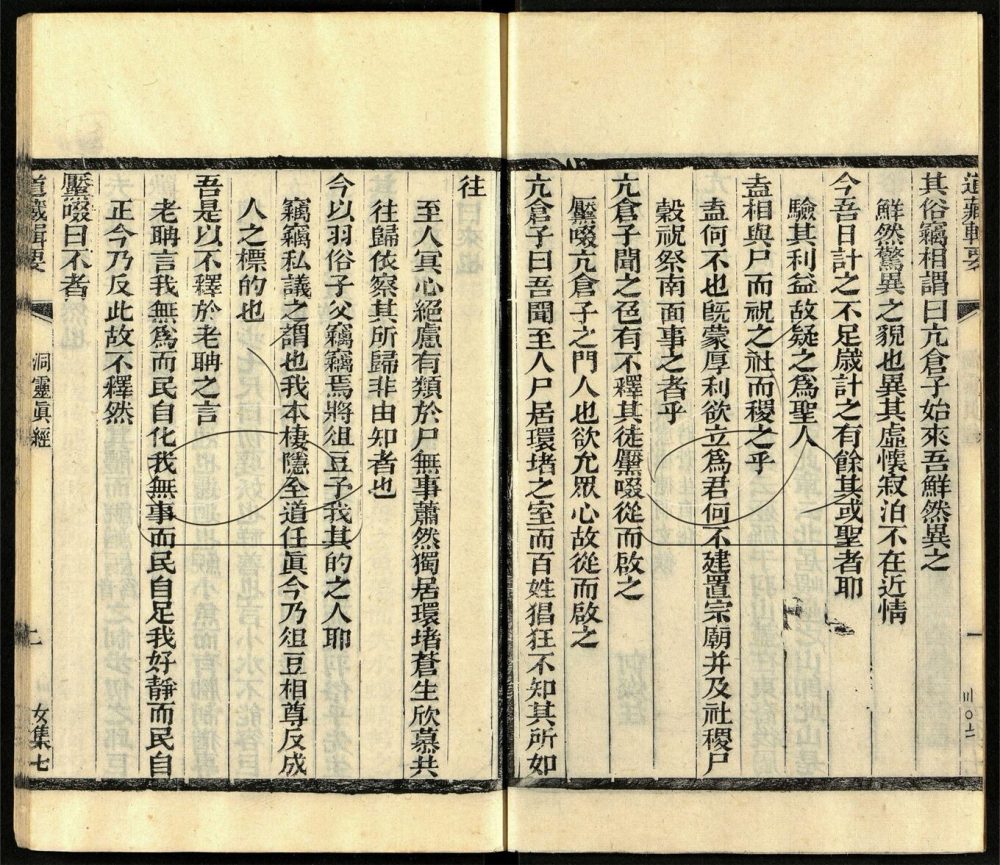 道藏輯要
一
其俗竊相謂曰亢倉子始來吾鮮然異之
鮮然驚異之貌也異其虛懷寂泊不在近情
今吾日計之不足歲計之有餘其或聖者耶
驗其利益故疑之為聖人
盍相與尸而祝之社而稷之乎
盍何不也旣蒙厚利欲立為君何不建置宗廟并及社稷尸
穀祝祭南面事之者乎
亢倉子聞之色有不釋其徒啜從而啟之
啜亢倉子之門人也欲允眾心故從而啟之
亢倉子曰吾聞至人尸居環堵之室而百姓猖狂不知其所如
往
至人冥心絕慮有類於尸無事蕭然獨居環堵蒼生欣慕共
往歸依察其所歸非由知者也
今以羽俗子父竊竊焉將俎豆予我其的之人耶
竊竊私議之謂也我本棲隱全道任眞今乃俎豆相尊反成
人之標的也
吾是以不釋於老聃之言
老聃言我無爲而民自化我無事而民自足我好靜而民自
正今乃反此故不釋然
啜曰不者
道藏輯要
洞靈眞經
二
女集七